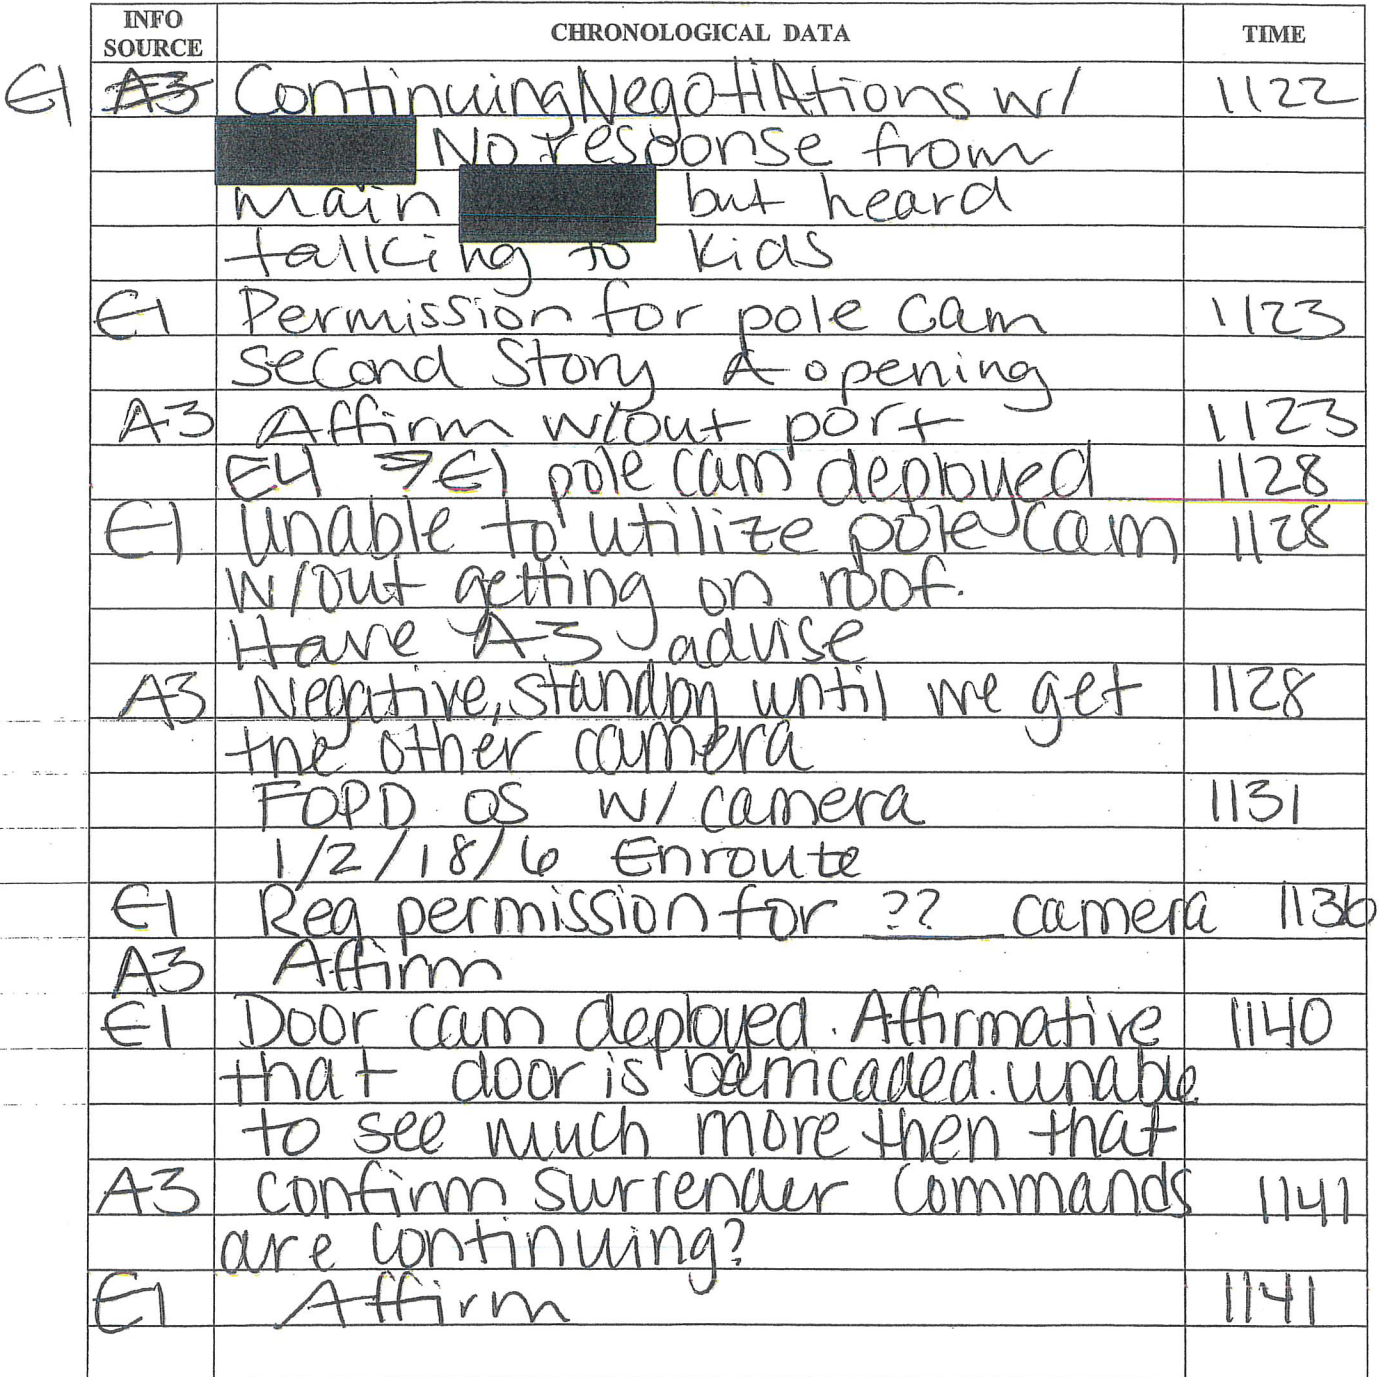 INFO SOURCE CHRONOLOGICAL DATA TIME
E1 A3 Continuing Negotiations w/ 1122
No response from
main but heard
talking to kids
E1 Permission for pole cam 1123
second story A opening
A3 Affirm w/out port 1123
E4 → E1 pole cam deployed 1128
E1 unable to utilize pole cam 1128
w/out getting on roof.
Have A3 advise
A3 Negative, standby until we get 1128
the other camera
FOPD OS w/ camera 1131
1/2/18/6 Enroute
E1 Req permission for ?? camera 1136
A3 Affirm
E1 Door cam deployed. Affirmative 1140
that door is barricaded. unable
to see much more then that
A3 confirm surrender commands 1141
are continuing?
E1 Affirm 1141